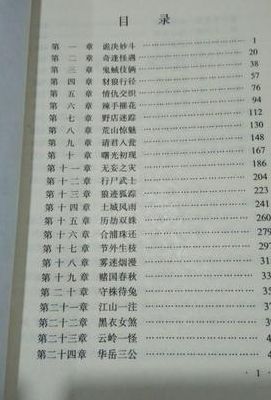 目 录
第一章 诡决妙斗 1
第二章 奇逢怪遇 20
第三章 鬼蜮伎俩 38
第四章 豺狼行径 57
第五章 情仇交织 76
第六章 辣手摧花 94
第七章 野店迷踪 112
第八章 荒山惊魅 130
第九章 请君入瓮 148
第十章 曙光初现 167
第十一章 无妄之灾 186
第十二章 行尸武士 204
第十三章 狼迹狐踪 223
第十四章 土城风雨 241
第十五章 历劫双姝 260
第十六章 合浦珠还 279
第十七章 节外生枝 297
第十八章 雾迷烟漫 31
第十九章 赌国春秋 33
第二十章 守株待兔
第二十一章 江山一注 3
第二十二章 黑衣女煞
第二十三章 云岭一怪 4
第二十四章 华岳三公
· 1